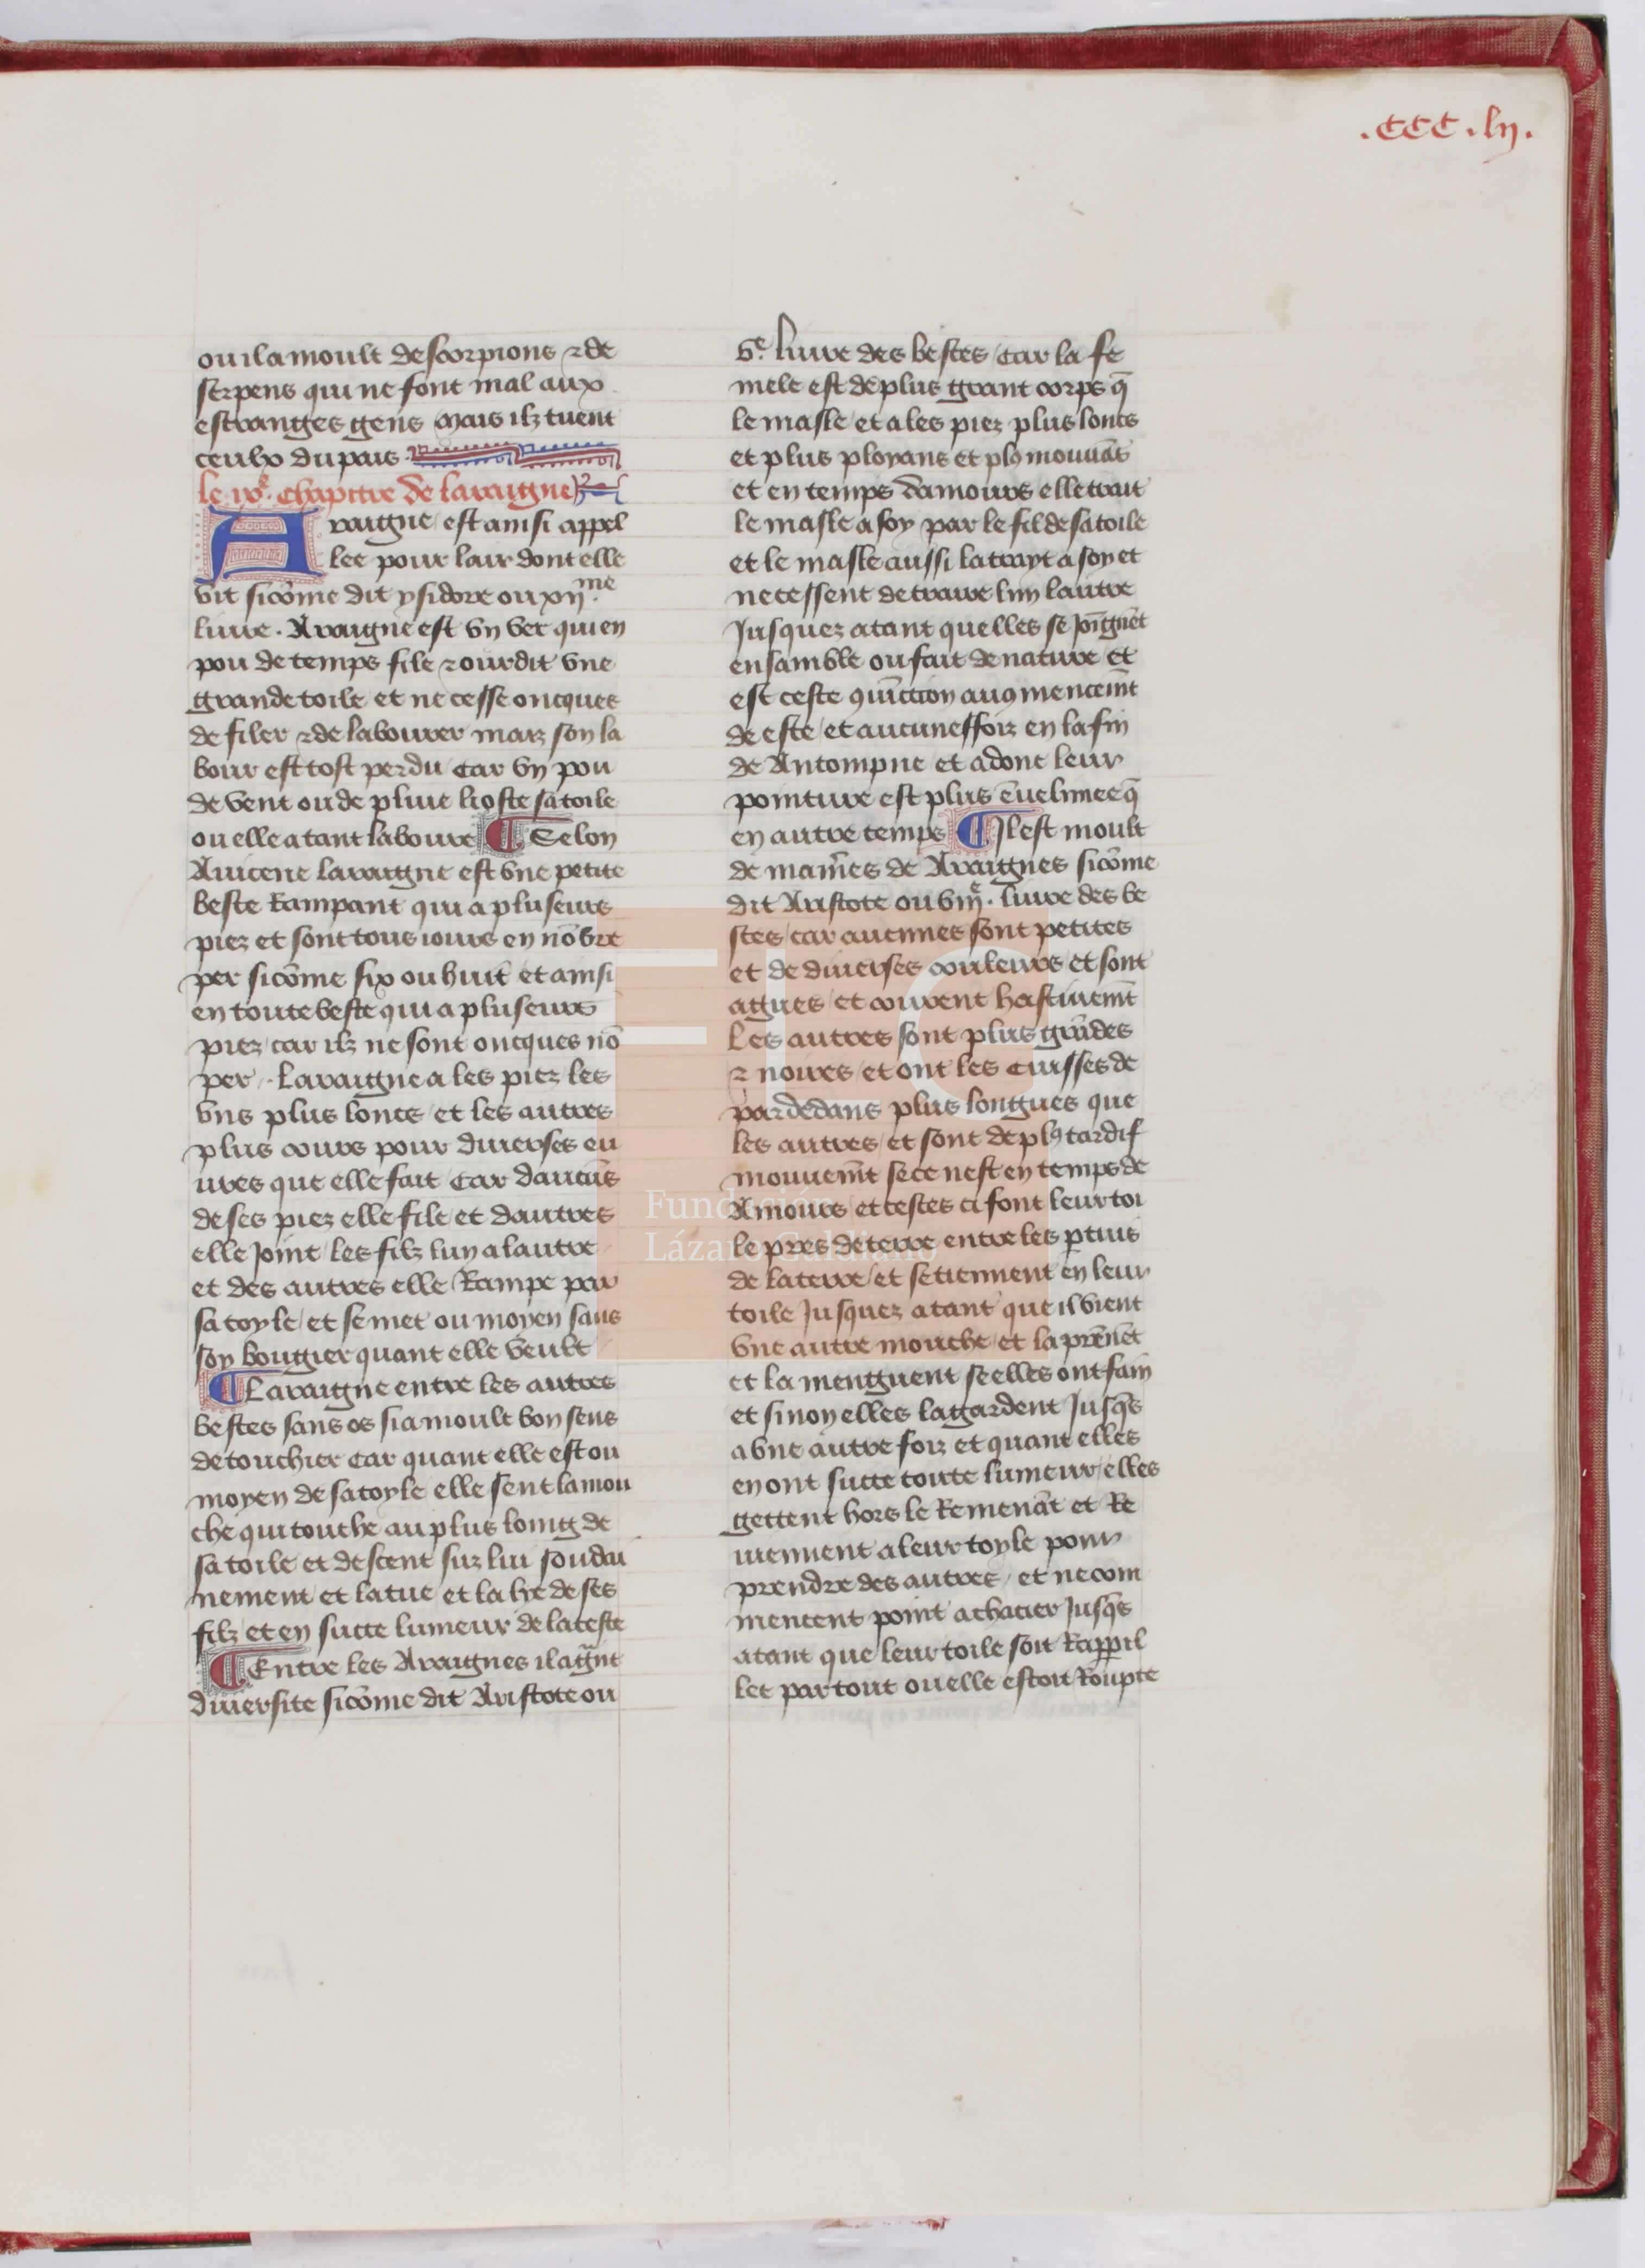 .CCC.lij.
ou il a moult de scorpions ⁊ de
serpens qui ne font mal aux
estranges gens mais ilz tuent
ceulx du pais.
le ixe. chapitre de laraigne
Araigne est ainsi appel
lee pour lair dont elle
vit sicōme dit ysidore ou xijme.
liure. Araigne est vn ver qui en
pou de temps file ⁊ ourdit vne
grande toile et ne cesse oncques
de filer ⁊ de labourer maiz son la
bour est tost perdu car vn pou
de vent ou de pluie li oste sa toile
ou elle a tant laboure ¶ Selon
Auicene laraigne est vne petite
beste Rampant qui a pluseurs
piez et sont tous iours en nōbre
per sicōme six ou huit et ainsi
en toute beste qui a pluseurs
piez car ilz ne sont oncques nō
per. Laraigne a les piez les
vns plus loncs et les autres
plus cours pour diuerses eu
ures que elle fait car daucūs
de ses piez elle file et dautres
elle joint les filz lun a lautre
et des autres elle Rampe par
sa toyle et se met ou moyen sans
soy bougier quant elle veult
¶ Laraigne entre les autres
bestes sans os si a moult bon sens
de touchier car quant elle est ou
moyen de sa toyle elle sent la mou
che qui touche au plus loing de
sa toile et descent sur lui soudai
nement et la tue et la lye de ses
filz et en succe lumeur de la teste
¶ Entre les Araignes il a gñt
diuersite sicōme dit Aristote ou
ve. liure des bestes car la fe
mele est de plus grant corps q̄
le masle et a les piez plus loncs
et plus ployans et plꝰ mouuās
et en temps damours elle trait
le masle a soy par le fil de sa toile
et le masle aussi la trayt a soy et
ne cessent de traire lun lautre
Jusquez a tant quelles se joīgnēt
ensamble ou fait de nature et
est ceste ꝯiūction au ꝯmencemīt
de este et aucuneffoiz en la fin
de Antompne et adont leur
pointure est plus ēuelimee q̄
en autre temps ¶ Il est moult
de maniēs de Araignes sicōme
dit Aristote ou viije. liure des be
stes car aucunes sont petites
et de diuerses couleurs et sont
agues et courent hastiuemīt
Les autres sont plus grādes
⁊ noires et ont les cuisses de
par dedans plus longues que
les autres et sont de plꝰ tardif
mouuemīt se ce nest en temps de
Amours et cestes ci font leur toi
le pres de terre entre les ꝑtuis
de la terre et se tiennent en leur
toile Jusquez a tant que il vient
vne autre mouche et la prēnēt
et la menguent se elles ont fain
et si non elles la gardent Jusq̄s
a vne autre foiz et quant elles
en ont succe toute lumeur elles
gettent hors le Remenāt et Re
uiennent a leur toyle pour
prendre des autres et ne com
mencent point a chacier Jusq̄s
a tant que leur toile soit Rappil
lee par tout ou elle estoit Roupte
FLG
Fundación
Lázaro Galdiano